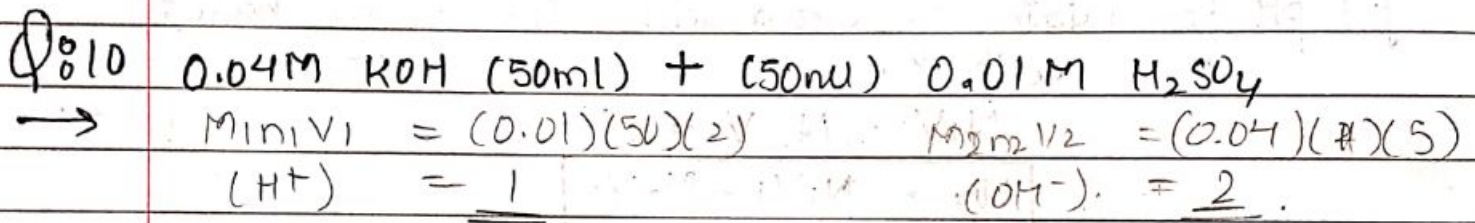 Q:10 0.04M KOH (50ml) + (50ml) 0.01M H₂SO₄
→ M1n1V1 = (0.01)(50)(2) M2n2V2 = (0.04)( )(5)
(H+) = 1 (OH-). = 2.